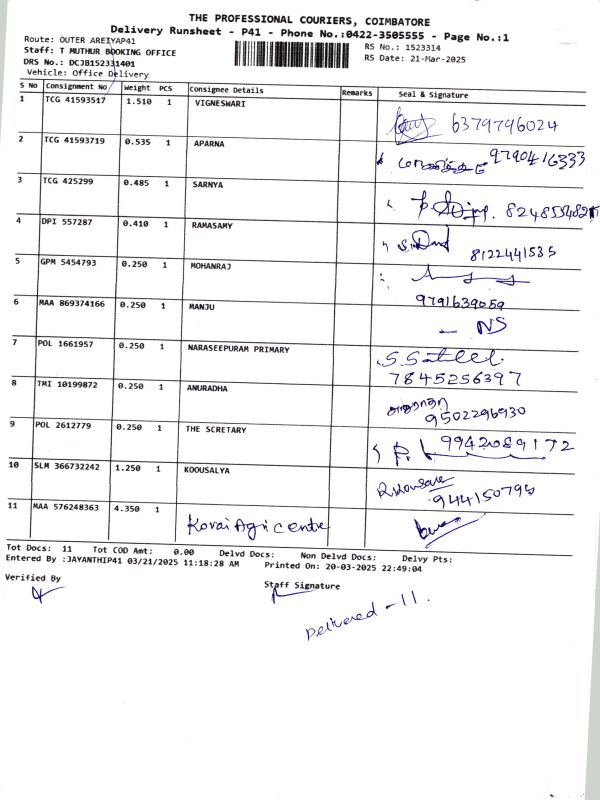 THE PROFESSIONAL COURIERS, COIMBATORE
Delivery Runsheet - P41 - Phone No.:0422-3505555 - Page No.:1
Route: OUTER AREIYAP41
RS No.: 1523314
Staff: T MUTHUR BOOKING OFFICE
RS Date: 21-Mar-2025
DRS No.: DCJB152331401
Vehicle: Office Delivery
S No Consignment No Weight PCS Consignee Details Remarks Seal & Signature
1 TCG 41593517 1.510 1 VIGNESWARI
6379796024
2 TCG 41593719 0.535 1 APARNA
9790416333
3 TCG 425299 0.485 1 SARNYA
4 DPI 557287 0.410 1 RAMASAMY
8122441535
5 GPM 5454793 0.250 1 MOHANRAJ
9791639059
6 MAA 869374166 0.250 1 MANJU
- NS
7 POL 1661957 0.250 1 NARASEEPURAM PRIMARY
7845256397
8 TMI 10199872 0.250 1 ANURADHA
அனுராதா
9502296930
9 POL 2612779 0.250 1 THE SCRETARY
9942089172
10 SLM 366732242 1.250 1 KOOUSALYA
944150795
11 MAA 576248363 4.350 1
Kovai Agri centre
Tot Docs: 11 Tot COD Amt: 0.00 Delvd Docs: Non Delvd Docs: Delvy Pts:
Entered By :JAYANTHIP41 03/21/2025 11:18:28 AM Printed On: 20-03-2025 22:49:04
Verified By
Staff Signature
Delivered - 11.